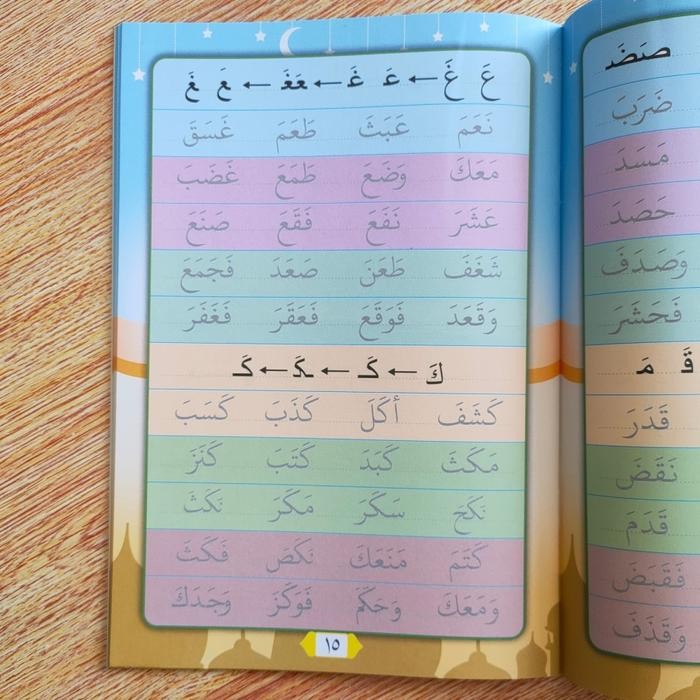 عَ غَ ← عَـ غَـ ← ـعَـغَـ ← عَ غَ
نَعَمَ عَبَثَ طَعَمَ غَسَقَ
مَعَكَ وَضَعَ طَمَعَ غَضَبَ
عَشَرَ نَفَعَ فَقَعَ صَنَعَ
شَغَفَ طَعَنَ صَعَدَ فَجَمَعَ
وَقَعَدَ فَوَقَعَ فَعَقَرَ فَغَفَرَ
كَ ← كَـ ← ـكَـ ← كَـ
كَشَفَ أَكَلَ كَذَبَ كَسَبَ
مَكَثَ كَبَدَ كَتَبَ كَنَزَ
نَكَحَ سَكَرَ مَكَرَ نَكَثَ
كَتَمَ مَنَعَكَ نَكَصَ فَكَثَ
وَمَعَكَ وَحَكَمَ فَوَكَزَ وَجَدَكَ
١٥
صَـضَـ
ضَرَبَ
مَسَدَ
حَصَدَ
وَصَدَفَ
فَحَشَرَ
قَ مَ
قَدَرَ
نَقَضَ
قَدَمَ
فَقَبَضَ
وَقَذَفَ